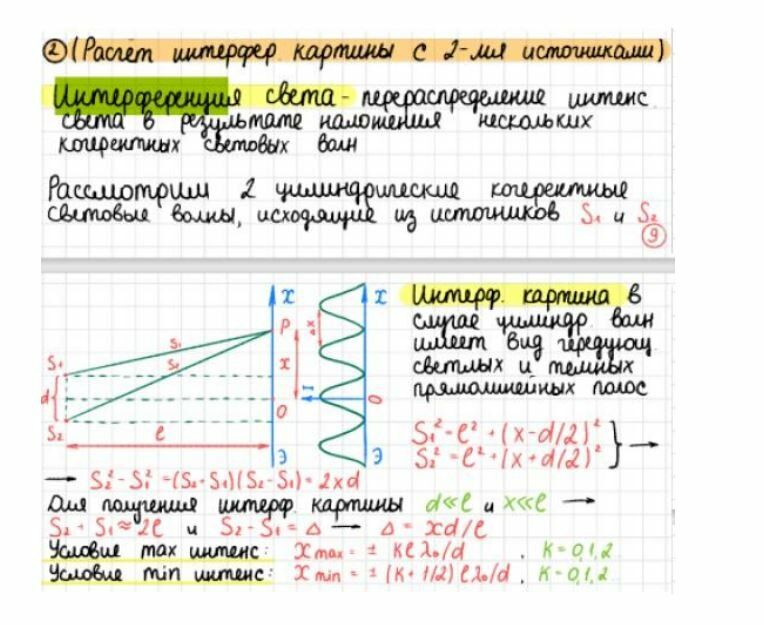 ② (Расчёт интерфер. картины с 2-мя источниками)
Интерференция света - перераспределение интенс.
света в результате наложения нескольких
когерентных световых волн
Рассмотрим 2 цилиндрические когерентные
световые волны, исходящие из источников S₁ и S₂
9
x
P
S₁
S₂
x
S₁
d
O
S₂
l
Э
x
Δx
I
O
Э
Интерф. картина в
случае цилиндр. волн
имеет вид чередующ.
светлых и темных
прямолинейных полос
S₁² = l² + (x-d/2)²
S₂² = l² + (x+d/2)² } →
→ S₂² - S₁² = (S₂+S₁)(S₂-S₁) = 2xd
Для получения интерф. картины d≪l и x≪l →
S₂ + S₁ ≈ 2l и S₂ - S₁ = Δ → Δ = xd/l
Условие max интенс: x max = ± klλ₀/d , k = 0,1,2
Условие min интенс: x min = ± (k+1/2) lλ₀/d , k = 0,1,2